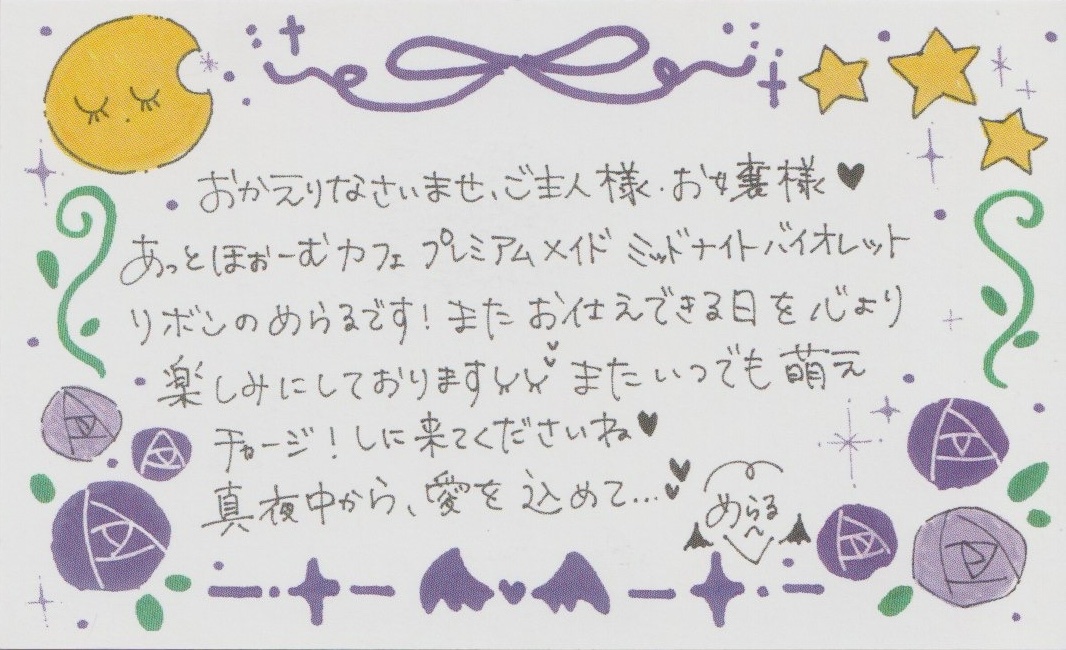 おかえりなさいませ、ご主人様・お嬢様♥
あっとほぉーむカフェ プレミアムメイド ミッドナイトバイオレット
リボンのめらるです！また お仕えできる日を心より
楽しみにしております♥♥ またいつでも萌え
チャージ！しに来てくださいね♥
真夜中から、愛を込めて…♥♥
めらる